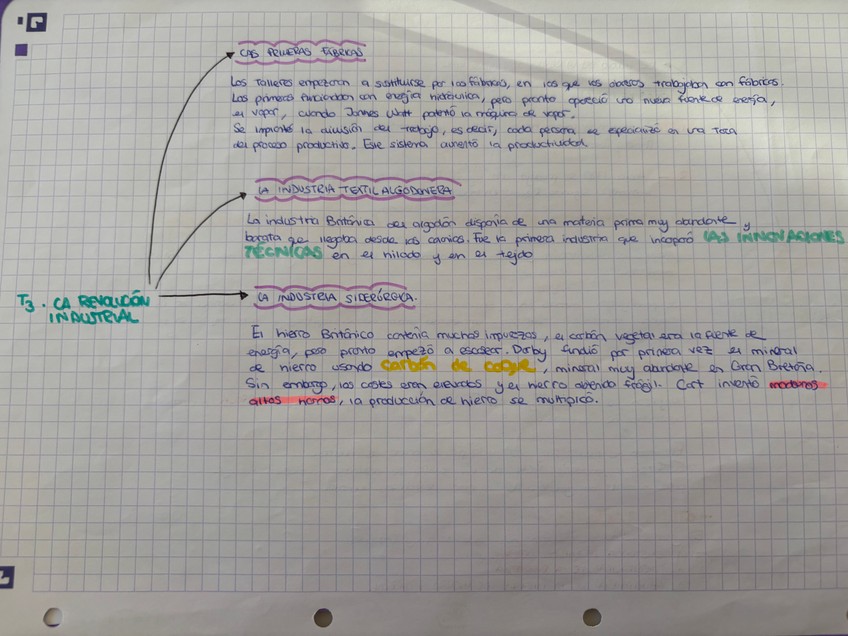 LAS PRIMERAS FÁBRICAS
Los talleres empezaron a sustituirse por las fábricas, en las que los obreros trabajaban con fábricas.
Las primeras funcionaban con energía hidráulica, pero pronto apareció una nueva fuente de energía,
el vapor, cuando James Watt patentó la máquina de vapor.
Se implantó la división del trabajo, es decir, cada persona se especializó en una
del proceso productivo. Este sistema aumentó la productividad.
LA INDUSTRIA TEXTIL ALGODONERA
La industria Británica del algodón disponía de una materia prima muy abundante y
barata que llegaba desde las Fue la primera industria que incorporó LAS INNOVACIONES
TÉCNICAS en el hilado y en el tejido
T3. LA REVOLUCIÓN
INDUSTRIAL
LA INDUSTRIA SIDERÚRGICA.
El hierro Británico contenía muchas impurezas, el carbón vegetal era la fuente de
energía, pero pronto empezó a escasear. Darby fundió por primera vez el mineral
de hierro usando carbón de coque, mineral muy abundante en Gran Bretaña.
Sin embargo, los costes eran elevados y el hierro obtenido frágil. Cort inventó modernos
altos hornos, la producción de hierro se multiplicó.